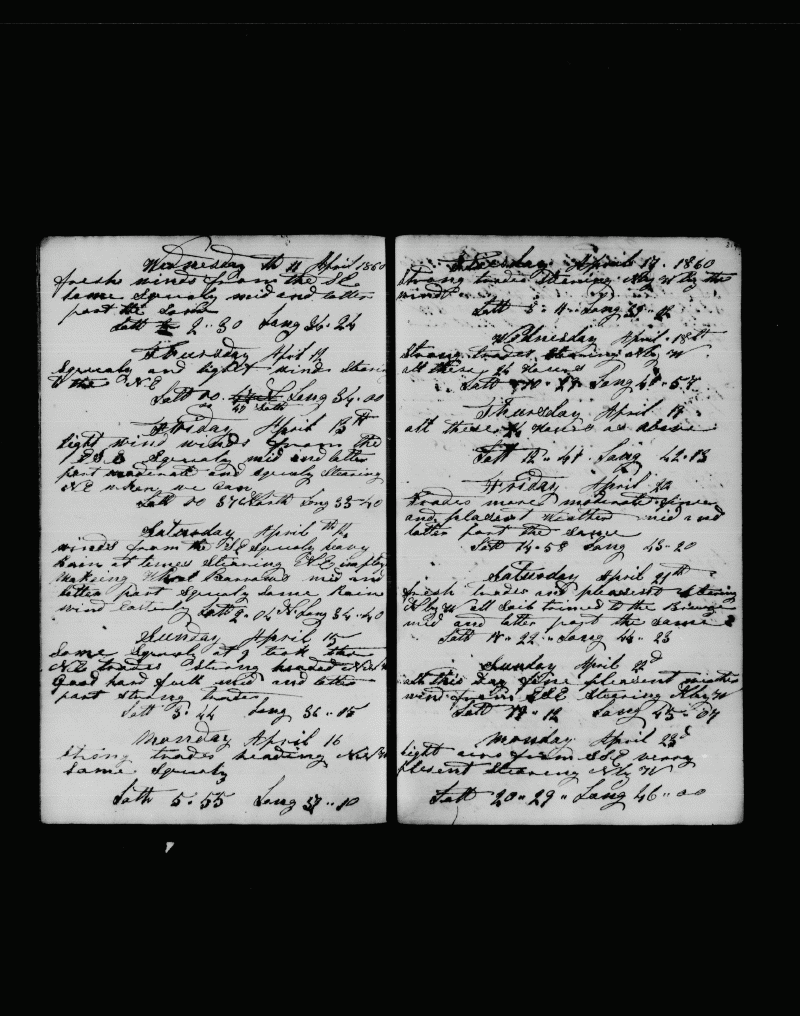 Wednesday th 11 April 1860
fresh winds from the SE
some Squaly mid and latter
part the Same
Latt 2 .. 30 Long 36 . 24
Thursday Aprl 12
Squealy and light winds Stearing
to the N E
Latt 00 . Long 34 . 00
49 Soth
Friday April 13th
light wind winds from the
Squaly mid and latter
part moderate and squaly Stearing
NE when we can
Latt 00 37 North Long 33 - 40
Saturday April th 14
winds from the SE Squaly heavy
Rain at times Stearing
Makeing mid and
latter part Squaly Some Rain
wind Easterly Latt 2 .. 04 N. Long 34 - 40
Sunday April 15
Some Squals at 9 took the
NE trades Strong headed
Good hard full mid and latter
part Strong trades
Latt 3 . 44 Long 36 .. 15
Monday April 16
Strong trades heading
some Squaly
Latt 5 . 55 Long 37 .. 10
Tuesday April 17 . 1860
Strong trades Stearing N by W by the
wind
Latt Long 39
Wednesday April 18th
Strong trades Stearing N by W
all these 24 Hours
Latt Long 57
Thursday April 19
all these 24 Hours as above
Latt 12 . 41 Long 42 . 13
Friday April 20
trades more moderate
and plasent Weather mid and
latter part the same
Latt 14 . 58 Long 43 - 20
Saturday April 21th
fresh trades and pleasent Stering
N by W all Sail trimed to the
mid and latter part the same
Latt 22 .. Long 44 .. 23
Sunday April 22d
all this Day fine plesent weather
wind from ESE Stearing N by W
Latt 12 Long 45 .. 07
Monday April 23d
light airs from ESE verry
Plesent Stearing N by W
Latt 20 .. 29 .. Long 46 .. 00